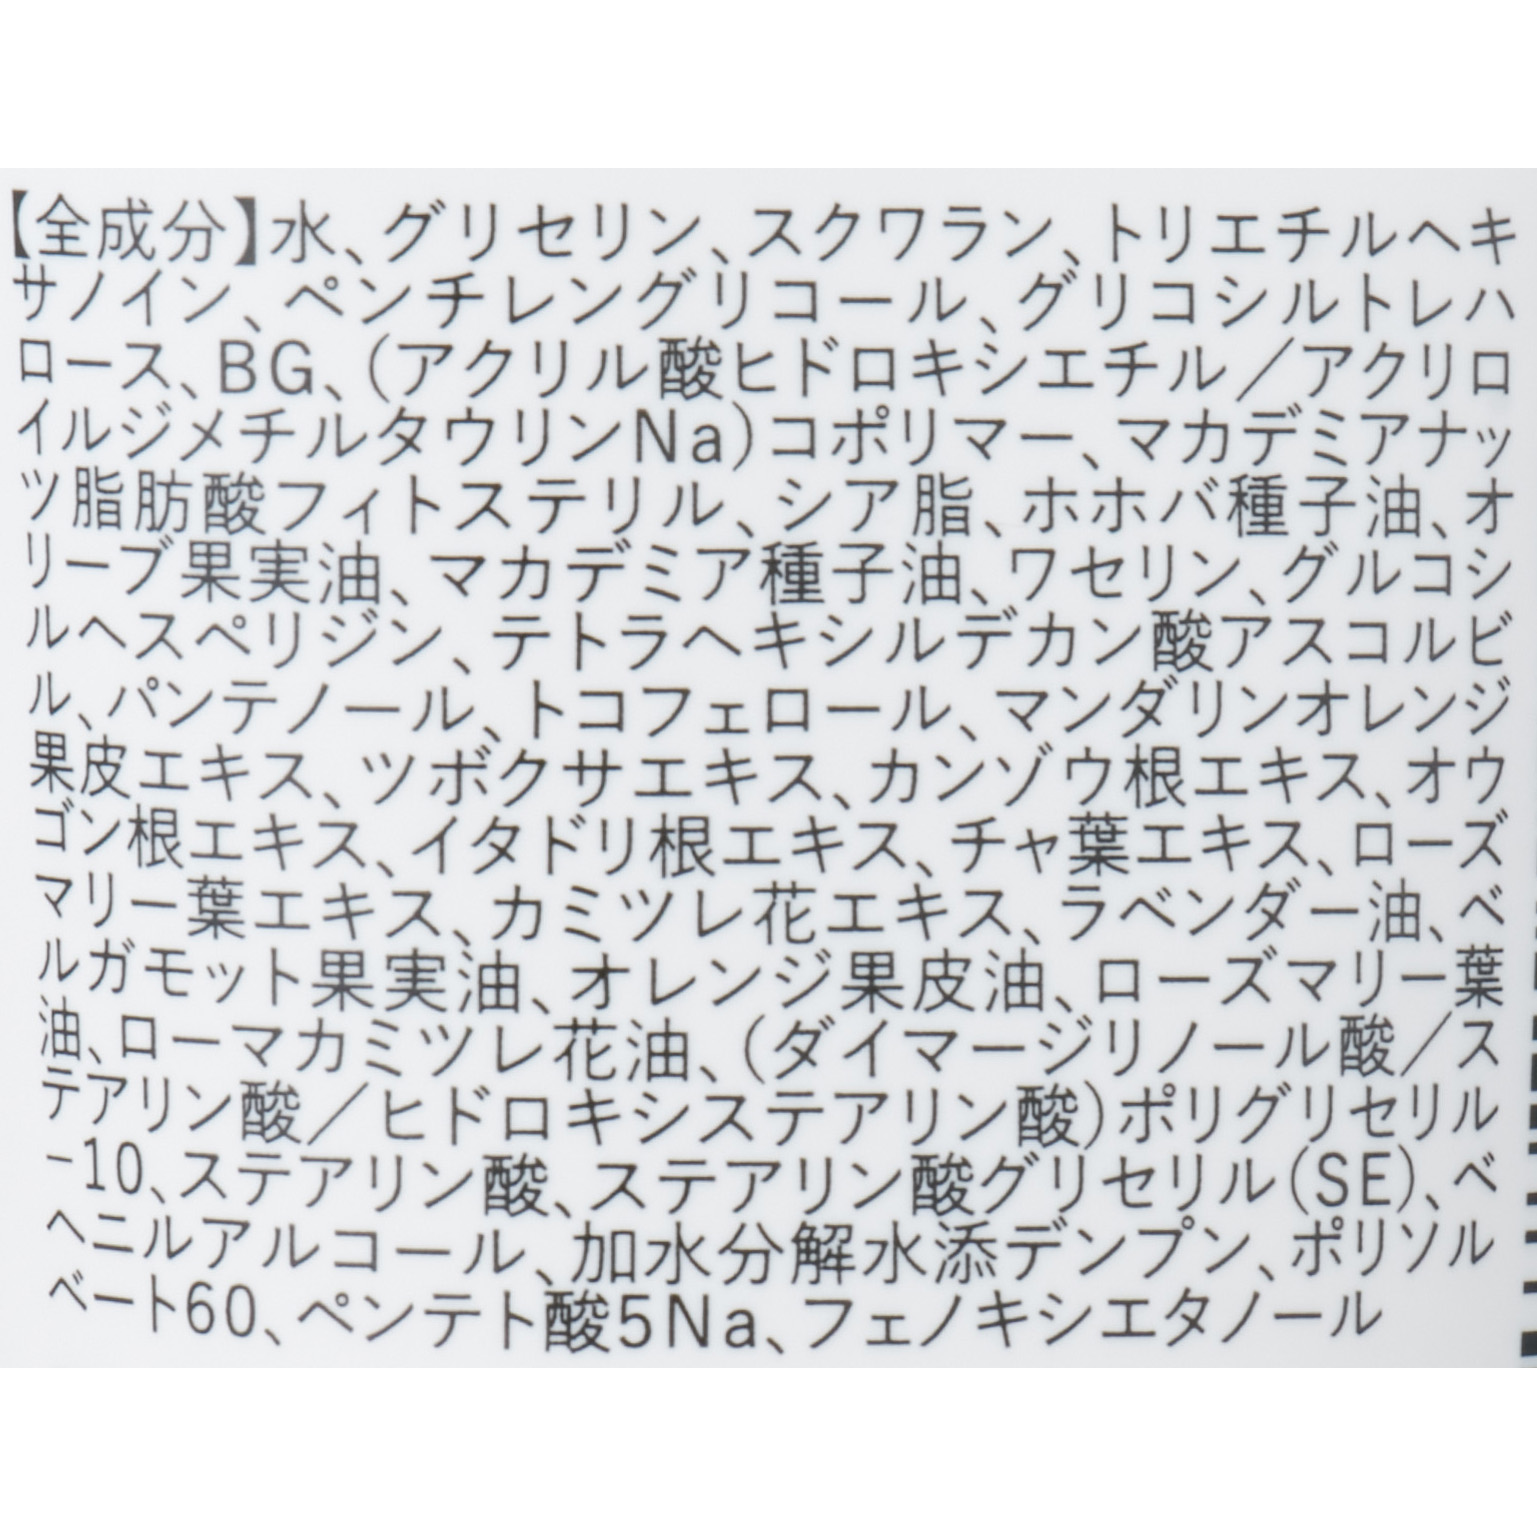 【全成分】水、グリセリン、スクワラン、トリエチルヘキ
サノイン、ペンチレングリコール、グリコシルトレハ
ロース、BG、(アクリル酸ヒドロキシエチル／アクリロ
イルジメチルタウリンNa)コポリマー、マカデミアナッ
ツ脂肪酸フィトステリル、シア脂、ホホバ種子油、オ
リーブ果実油、マカデミア種子油、ワセリン、グルコシ
ルヘスペリジン、テトラヘキシルデカン酸アスコルビ
ル、パンテノール、トコフェロール、マンダリンオレンジ
果皮エキス、ツボクサエキス、カンゾウ根エキス、オウ
ゴン根エキス、イタドリ根エキス、チャ葉エキス、ローズ
マリー葉エキス、カミツレ花エキス、ラベンダー油、ベ
ルガモット果実油、オレンジ果皮油、ローズマリー葉
油、ローマカミツレ花油、(ダイマージリノール酸／ス
テアリン酸／ヒドロキシステアリン酸)ポリグリセリル
-10、ステアリン酸、ステアリン酸グリセリル(SE)、ベ
ヘニルアルコール、加水分解水添デンプン、ポリソル
ベート60、ペンテト酸5Na、フェノキシエタノール